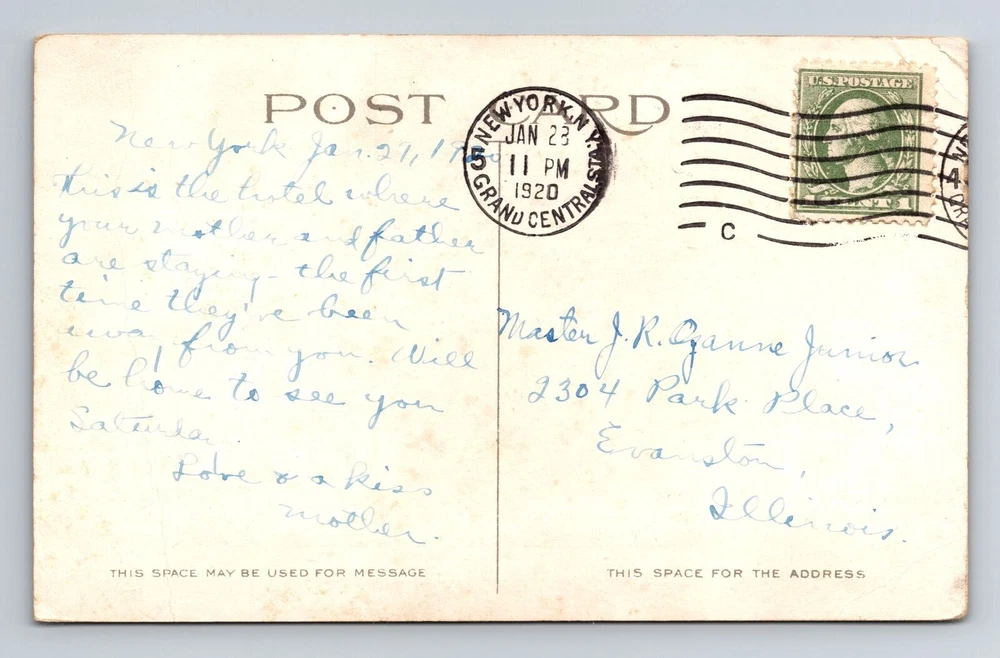 POST CARD
NEW YORK, N.Y.
JAN 28
11 PM
1920
5 GRAND CENTRAL STA.
U.S. POSTAGE
1 CENT 1
C
New York Jan. 27, 1920
This is the hotel where
your mother and father
are staying - the first
time they've been
away from you. Will
be home to see you
Saturday.
Love & a kiss
Mother.
Master J. R. Ozanne Junior
2304 Park Place,
Evanston,
Illinois.
THIS SPACE MAY BE USED FOR MESSAGE
THIS SPACE FOR THE ADDRESS